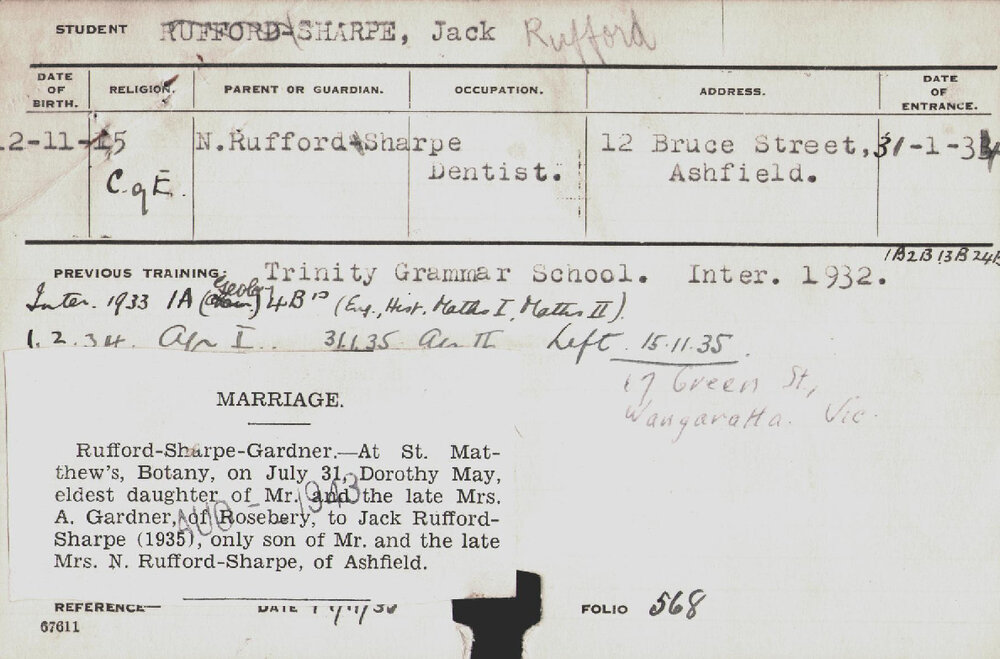 STUDENT RUFFORD-SHARPE, Jack Rufford
DATE OF BIRTH. RELIGION. PARENT OR GUARDIAN. OCCUPATION. ADDRESS. DATE OF ENTRANCE.
2-11-15 N. Rufford-Sharpe 12 Bruce Street, 31-1-34
C. of E. Dentist. Ashfield.
1A2B 13B24B
PREVIOUS TRAINING: Trinity Grammar School. Inter. 1932.
Inter. 1933 1A (Geology) 4Bs (Eng., Hist. Maths I, Maths II)
1.2.34. Agr I. 31.1.35 Agr II Left 15.11.35.
17 Green St,
Wangaratta. Vic.
MARRIAGE.
Rufford-Sharpe-Gardner.—At St. Mat-
thew's, Botany, on July 31, Dorothy May,
eldest daughter of Mr. and the late Mrs.
A. Gardner, of Rosebery, to Jack Rufford-
Sharpe (1935), only son of Mr. and the late
Mrs. N. Rufford-Sharpe, of Ashfield.
AUG - 1943
REFERENCE— DATE FOLIO 568
67611